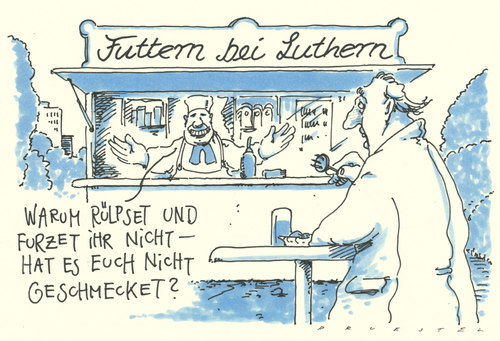 Futtern bei Luthern
WARUM RÜLPSET UND
FURZET IHR NICHT –
HAT ES EUCH NICHT
GESCHMECKET?
PRUESTEL